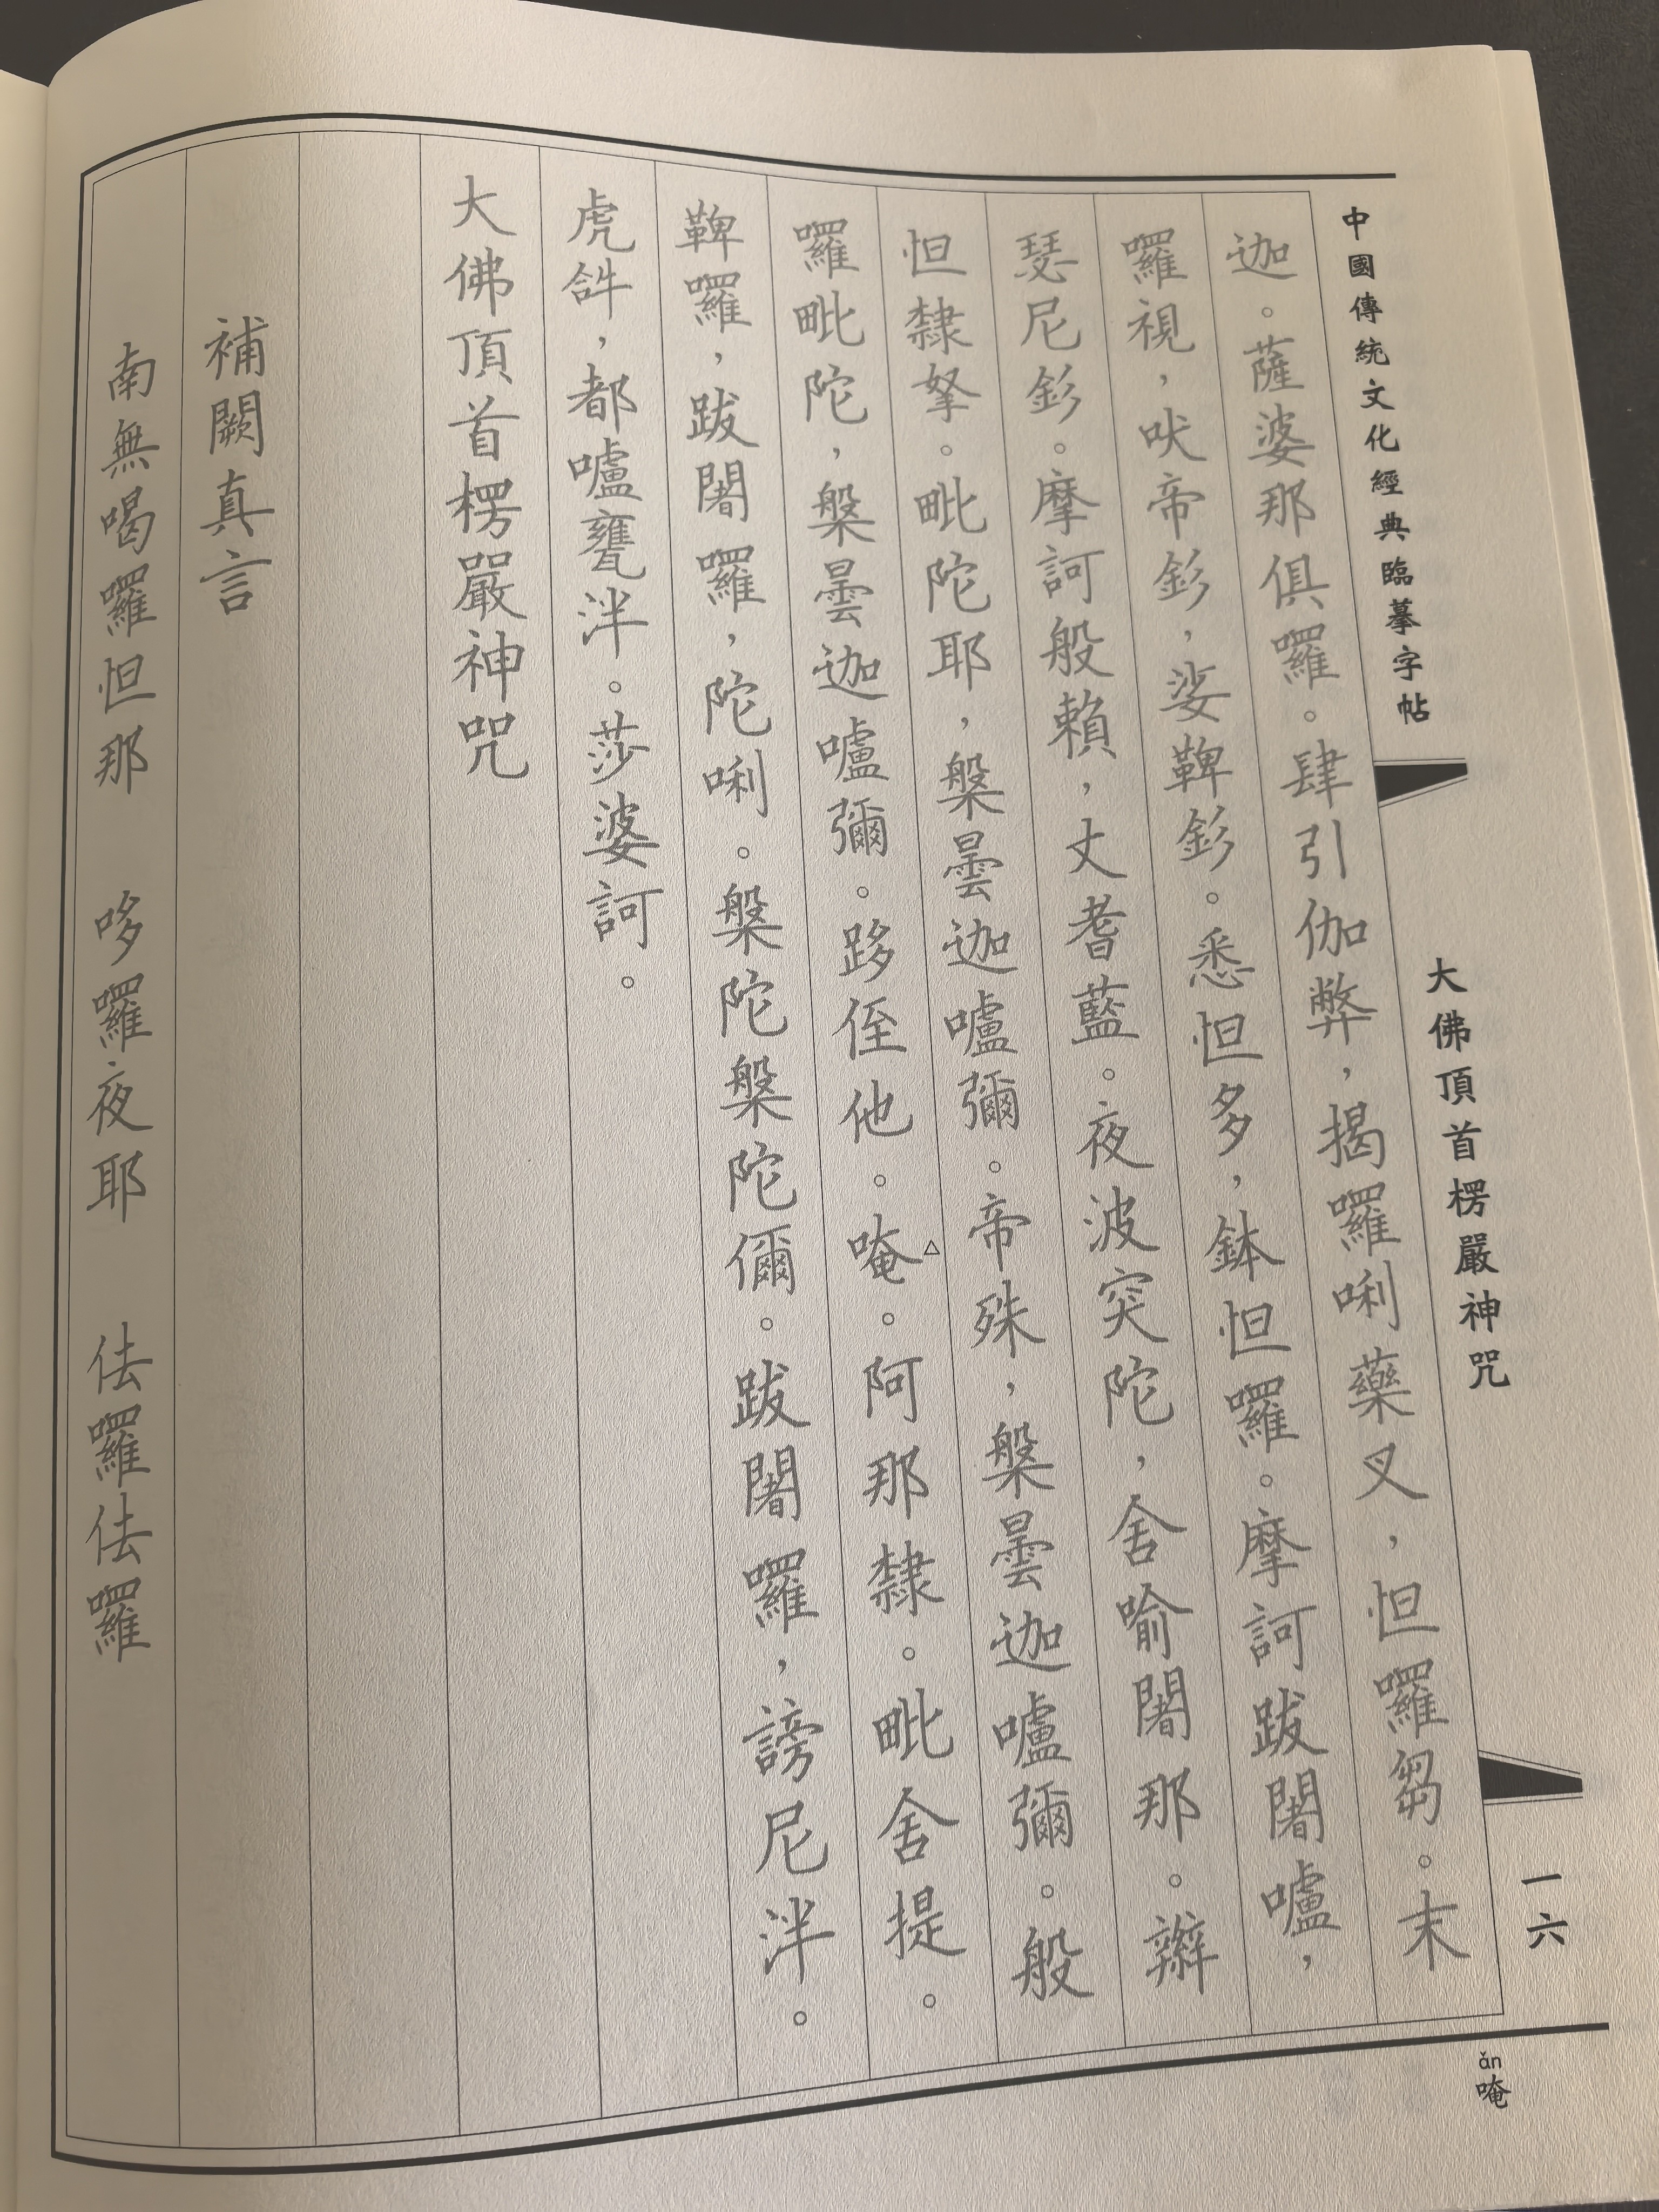 中國傳統文化經典臨摹字帖
大佛頂首楞嚴神咒
一六
迦。薩婆那俱囉。肆引伽弊，揭囉唎藥叉，怛囉芻。末
囉視，吠帝釤，娑鞞釤。悉怛多，鉢怛囉。摩訶跋闍嚧，
瑟尼釤。摩訶般賴，丈耆藍。夜波突陀，舍喻闍那。辮
怛隸拏。毗陀耶，槃曇迦嚧彌。帝殊，槃曇迦嚧彌。般
囉毗陀，槃曇迦嚧彌。跢侄他。唵。阿那隸。毗舍提。
鞞囉，跋闍囉，陀唎。槃陀槃陀儞。跋闍囉，謗尼泮。
虎𤙖，都嚧甕泮。莎婆訶。
大佛頂首楞嚴神咒
補闕真言
南無喝囉怛那 哆囉夜耶 佉囉佉囉
ǎn
唵